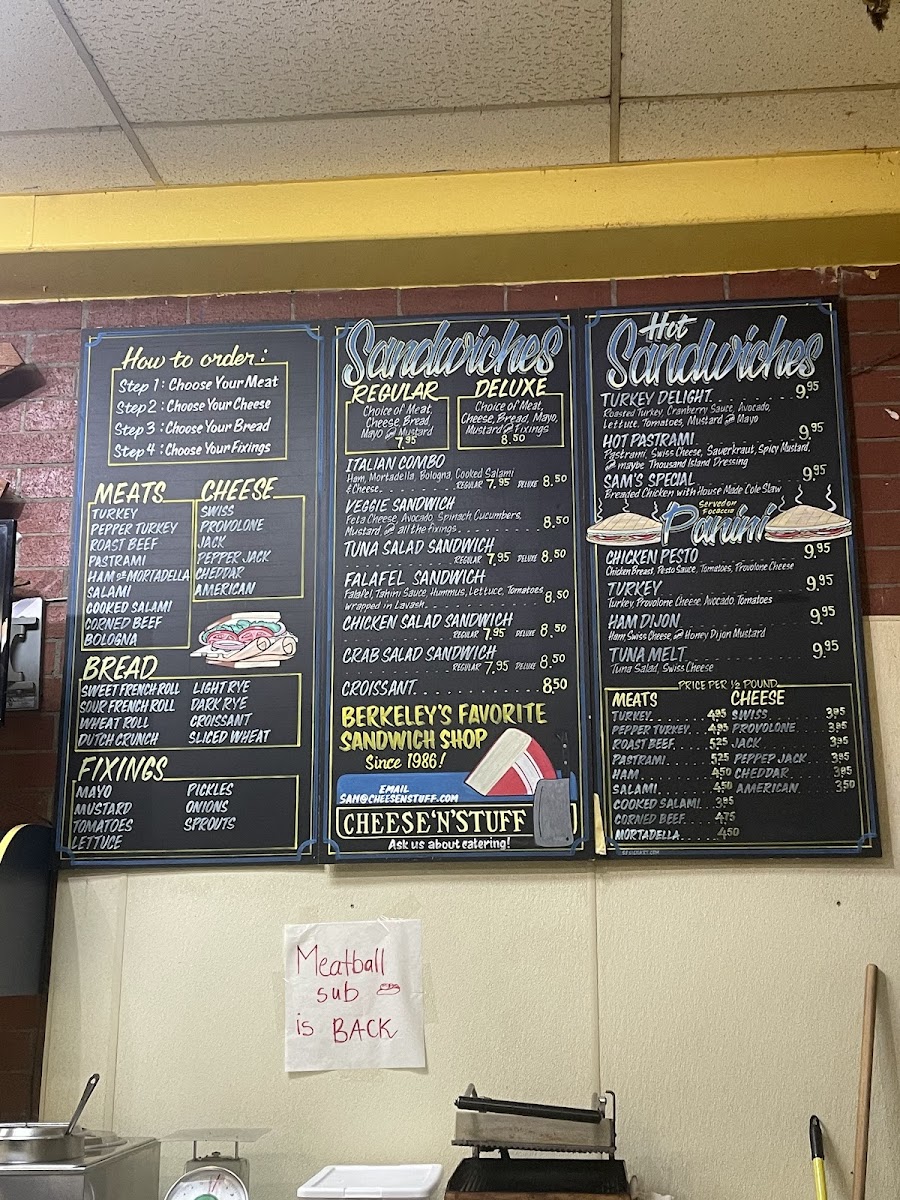 How to order:
Step 1: Choose Your Meat
Step 2: Choose Your Cheese
Step 3: Choose Your Bread
Step 4: Choose Your Fixings
MEATS
TURKEY
PEPPER TURKEY
ROAST BEEF
PASTRAMI
HAM OR MORTADELLA
SALAMI
COOKED SALAMI
CORNED BEEF
BOLOGNA
CHEESE
SWISS
PROVOLONE
JACK
PEPPER JACK
CHEDDAR
AMERICAN
BREAD
SWEET FRENCH ROLL
SOUR FRENCH ROLL
WHEAT ROLL
DUTCH CRUNCH
LIGHT RYE
DARK RYE
CROISSANT
SLICED WHEAT
FIXINGS
MAYO
MUSTARD
TOMATOES
LETTUCE
PICKLES
ONIONS
SPROUTS
Sandwiches
REGULAR
Choice of Meat,
Cheese, Bread,
Mayo and Mustard
7.95
DELUXE
Choice of Meat,
Cheese, Bread, Mayo,
Mustard and Fixings
8.50
ITALIAN COMBO
Ham, Mortadella, Bologna, Cooked Salami
& Cheese. REGULAR 7.95 DELUXE 8.50
VEGGIE SANDWICH
Feta Cheese, Avocado, Spinach, Cucumbers,
Mustard, and all the fixings 8.50
TUNA SALAD SANDWICH
REGULAR 7.95 DELUXE 8.50
FALAFEL SANDWICH
Falafel, Tahini Sauce, Hummus, Lettuce, Tomatoes
wrapped in Lavash 8.50
CHICKEN SALAD SANDWICH
REGULAR 7.95 DELUXE 8.50
CRAB SALAD SANDWICH
REGULAR 7.95 DELUXE 8.50
CROISSANT 8.50
BERKELEY'S FAVORITE
SANDWICH SHOP
Since 1986!
EMAIL
SAM@CHEESENSTUFF.COM
CHEESE'N'STUFF
Ask us about catering!
Hot
Sandwiches
TURKEY DELIGHT 9.95
Roasted Turkey, Cranberry Sauce, Avocado,
Lettuce, Tomatoes, Mustard and Mayo
HOT PASTRAMI 9.95
Pastrami, Swiss Cheese, Sauerkraut, Spicy Mustard,
and maybe Thousand Island Dressing
SAM'S SPECIAL 9.95
Breaded Chicken with House Made Cole Slaw
Served on
Focaccia
Panini
CHICKEN PESTO 9.95
Chicken Breast, Pesto Sauce, Tomatoes, Provolone Cheese
TURKEY 9.95
Turkey, Provolone Cheese, Avocado, Tomatoes
HAM DIJON 9.95
Ham, Swiss Cheese, and Honey Dijon Mustard
TUNA MELT 9.95
Tuna Salad, Swiss Cheese
PRICE PER ½ POUND
MEATS
TURKEY 4.95
PEPPER TURKEY 4.95
ROAST BEEF 5.25
PASTRAMI 5.25
HAM 4.50
SALAMI 4.50
COOKED SALAMI 3.95
CORNED BEEF 4.75
MORTADELLA 4.50
CHEESE
SWISS 3.95
PROVOLONE 3.95
JACK 3.95
PEPPER JACK 3.95
CHEDDAR 3.95
AMERICAN 3.50
Meatball
sub
is BACK